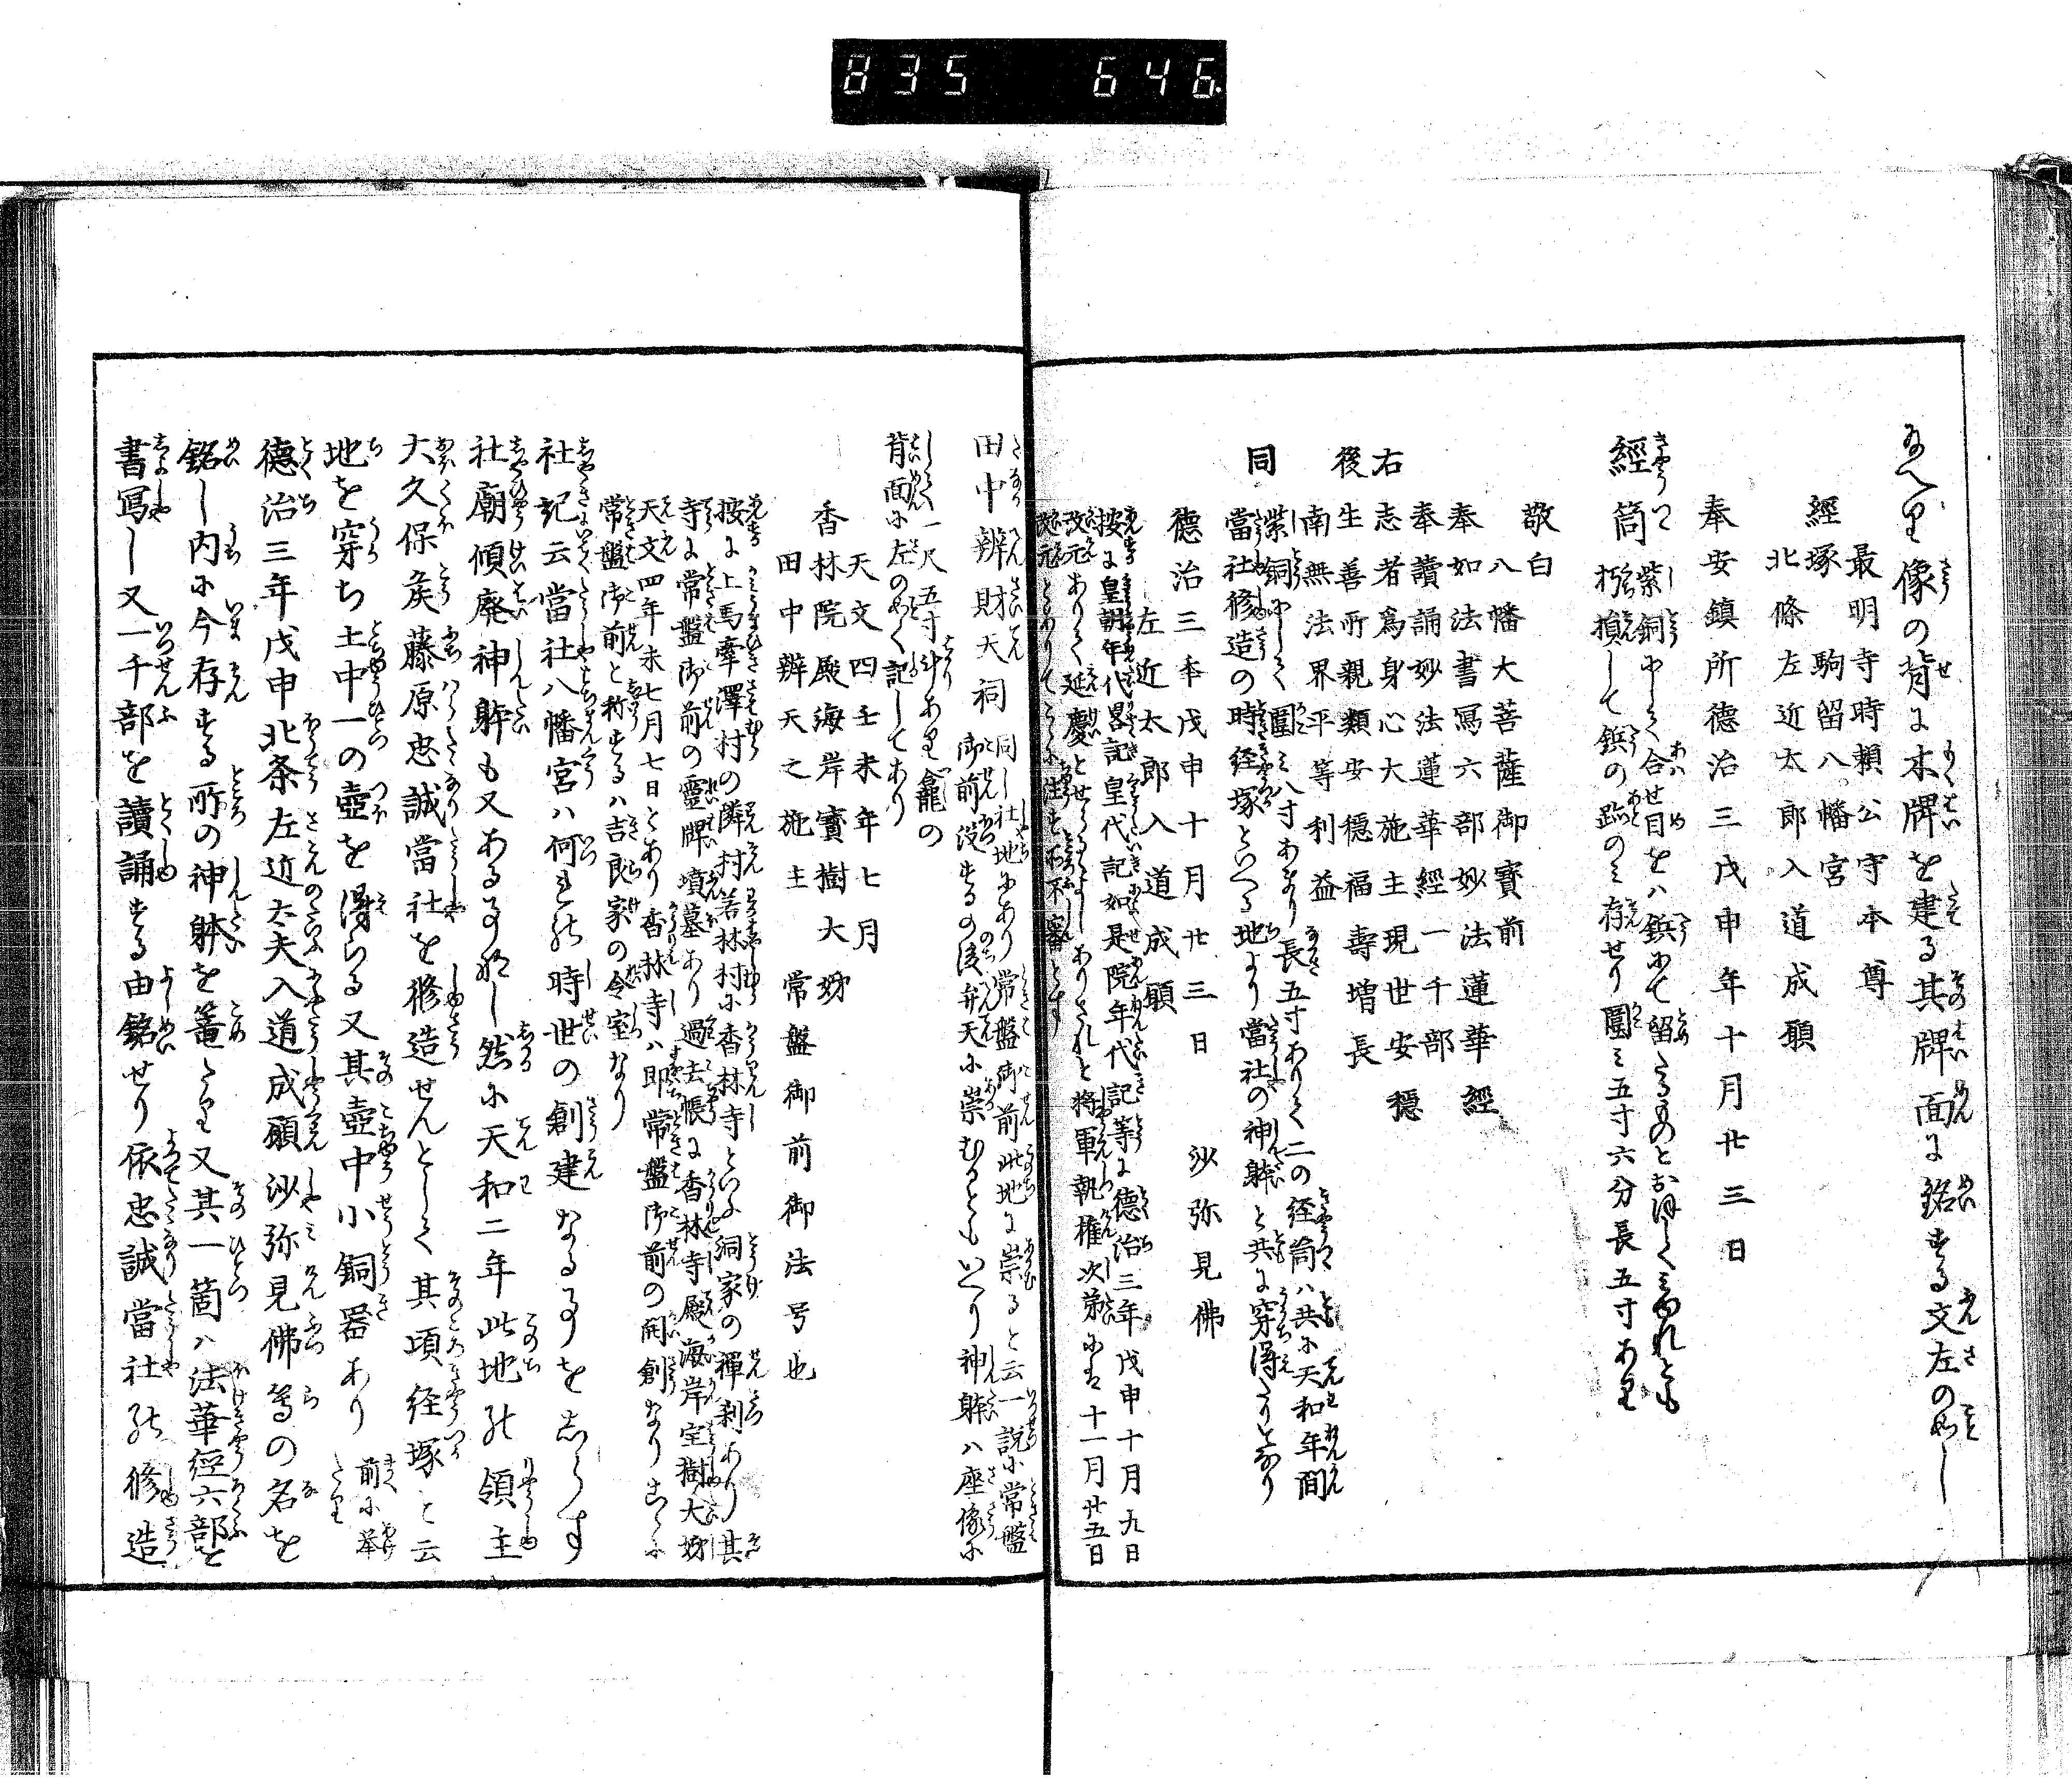 835 646
なへり像の背に木牌を建る其牌面に銘する文左の如し
最明寺時頼公守本尊
經塚駒留八幡宮
北條左近太郎入道成願
奉安鎮所德治三戊申年十月廿三日
經筒
紫銅にして合せ目をハ鋲にて留たるものとおほしくみゆれとも
朽損して鋲の跡のミ存せり圍ミ五寸六分長五寸あり
敬白
八幡大菩薩御寶前
奉如法書寫六部妙法蓮華經
奉讀誦妙法蓮華經一千部
右志者爲身心大施主現世安穩
後生善所親類安穩福壽增長
南無法界平等利益
同
紫銅にして圍ミ八寸あまり長五寸ありて二の経筒ハ共に天和年間
當社修造の時経塚といへる地より當社の神躰と共に穿得たりとなり
德治三年戊申十月廿三日 沙弥見佛
左近太郎入道成願
按に皇朝年代畧記皇代記如是院年代記等に德治三年戊申十月九日
改元ありて延慶とせるよしありされと将軍執権次第には十一月廿五日
改元とありてこゝに注す不審とす
田中辨財天祠
同し社地にあり常盤御前此地に崇ると云一説に常盤
御前没するの後弁天に崇むるともいへり神躰ハ座像に
して一尺五寸斗あり龕の
背面に左のめく記してあり
天文四壬未年七月
香林院殿海岸寳樹大姉
田中辨天之施主 常盤御前御法号也
按に上馬牽澤村の隣村若林村に香林寺といふ洞家の禪刹あり其
寺に常盤御前の靈牌墳墓あり過去帳に香林寺殿海岸宝樹大姉
天文四年未七月七日とあり香林寺ハ即常盤御前の開創なりこゝに
常盤御前と称するハ吉良家の令室なり
社記云當社八幡宮ハ何れの時世の創建なる事をしらす
社廟傾廃神躰も又ある事なし然に天和二年此地の領主
大久保矦藤原忠誠當社を修造せんとして其頃経塚と云
地を穿ち土中一の壺を得らる又其壺中小銅器あり
前に挙
たり
德治三年戊申北条左近太夫入道成願沙弥見佛等の名を
銘し内に今存する所の神躰を篭たり又其一箇ハ法華經六部を
書寫し又一千部を讀誦する由銘せり依忠誠當社の修造